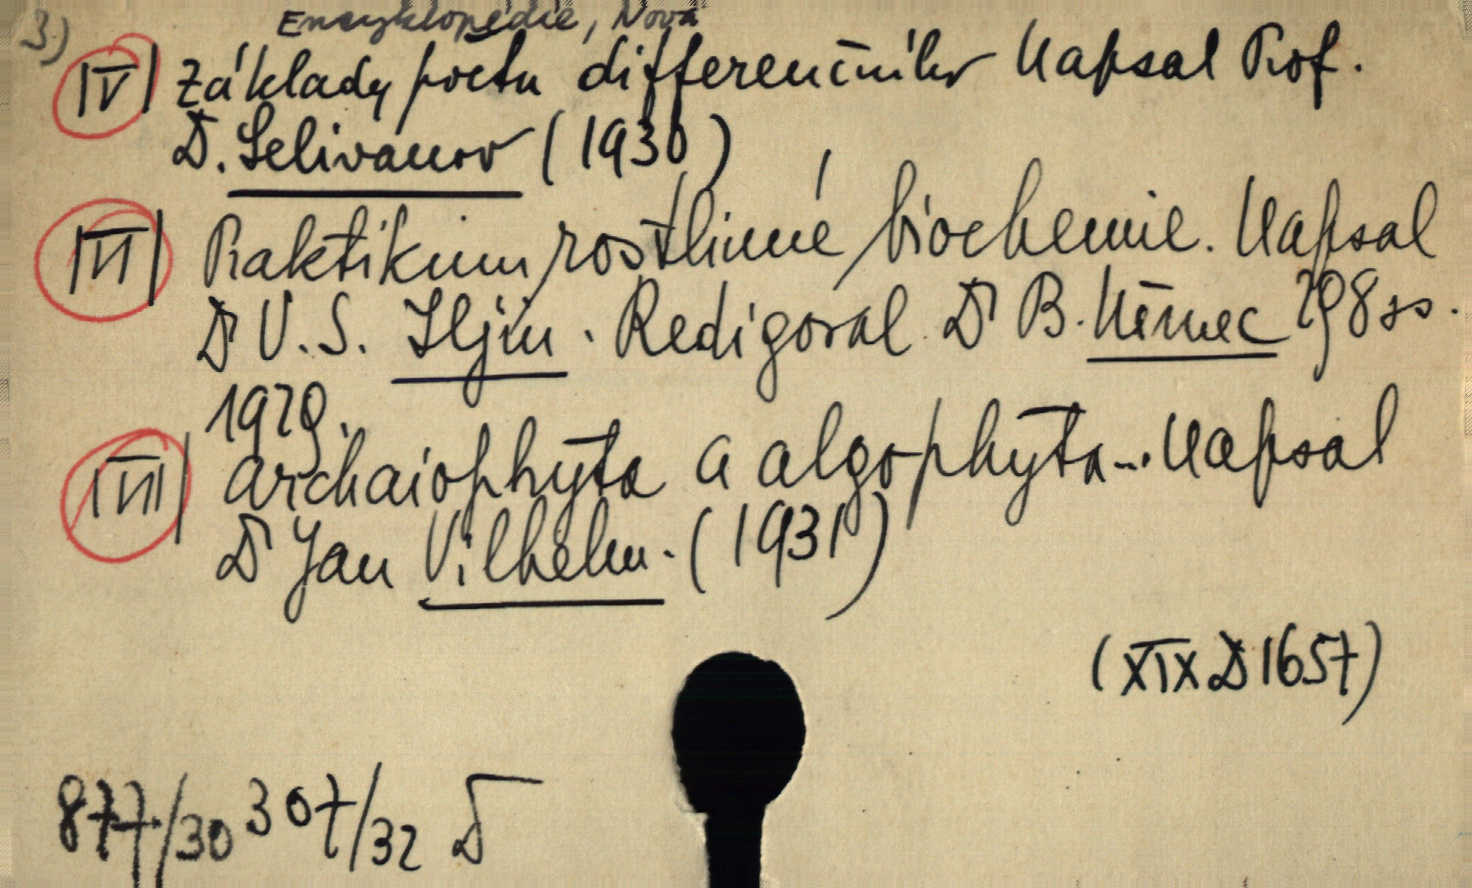 3.) Encyklopedie, Nová
|IV| Základy počtu differenčního Napsal Prof.
D. Selivanov (1930)
|VI| Praktikum rostlinné biochemie. Napsal
Dr V. S. Iljin. Redigoval Dr B. Němec 298 ss.
1929.
|VII| Archaiophyta a algophyta... Napsal
Dr Jan Vilhelm. (1931)
(XIX D 1657)
877/30 307/32 D